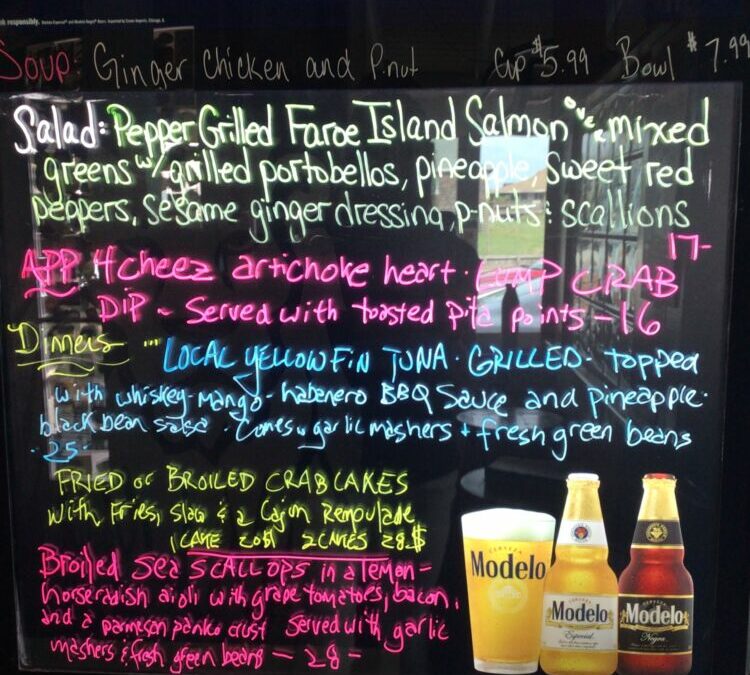 k responsibly.
Soup: Ginger Chicken and P.nut Cup $5.99 Bowl $7.99
Salad: Pepper Grilled Faroe Island Salmon over mixed
greens w/ grilled portobellos, pineapple sweet red
peppers, sesame ginger dressing, p-nuts & scallions
17-
APP 4cheez artichoke heart · LUMP CRAB
DIP ~ Served with toasted pita points - 16
Dinners "" LOCAL YELLOWFIN TUNA · GRILLED · topped
with whiskey-mango-habenero BBQ Sauce and pineapple·
black bean salsa · Comes w garlic mashers + fresh green beans
·25·
FRIED or BROILED CRABCAKES
with Fries, slaw & a Cajun Remoulade
1 CAKE 20$ 2 CAKES 28.$
Broiled Sea SCALLOPS in a lemon-
horseradish aioli with grape tomatoes, bacon,
and a parmesan panko crust Served with garlic
mashers & fresh green beans - 28 -
CERVEZA
Modelo
Modelo
Especial
Modelo
Negra